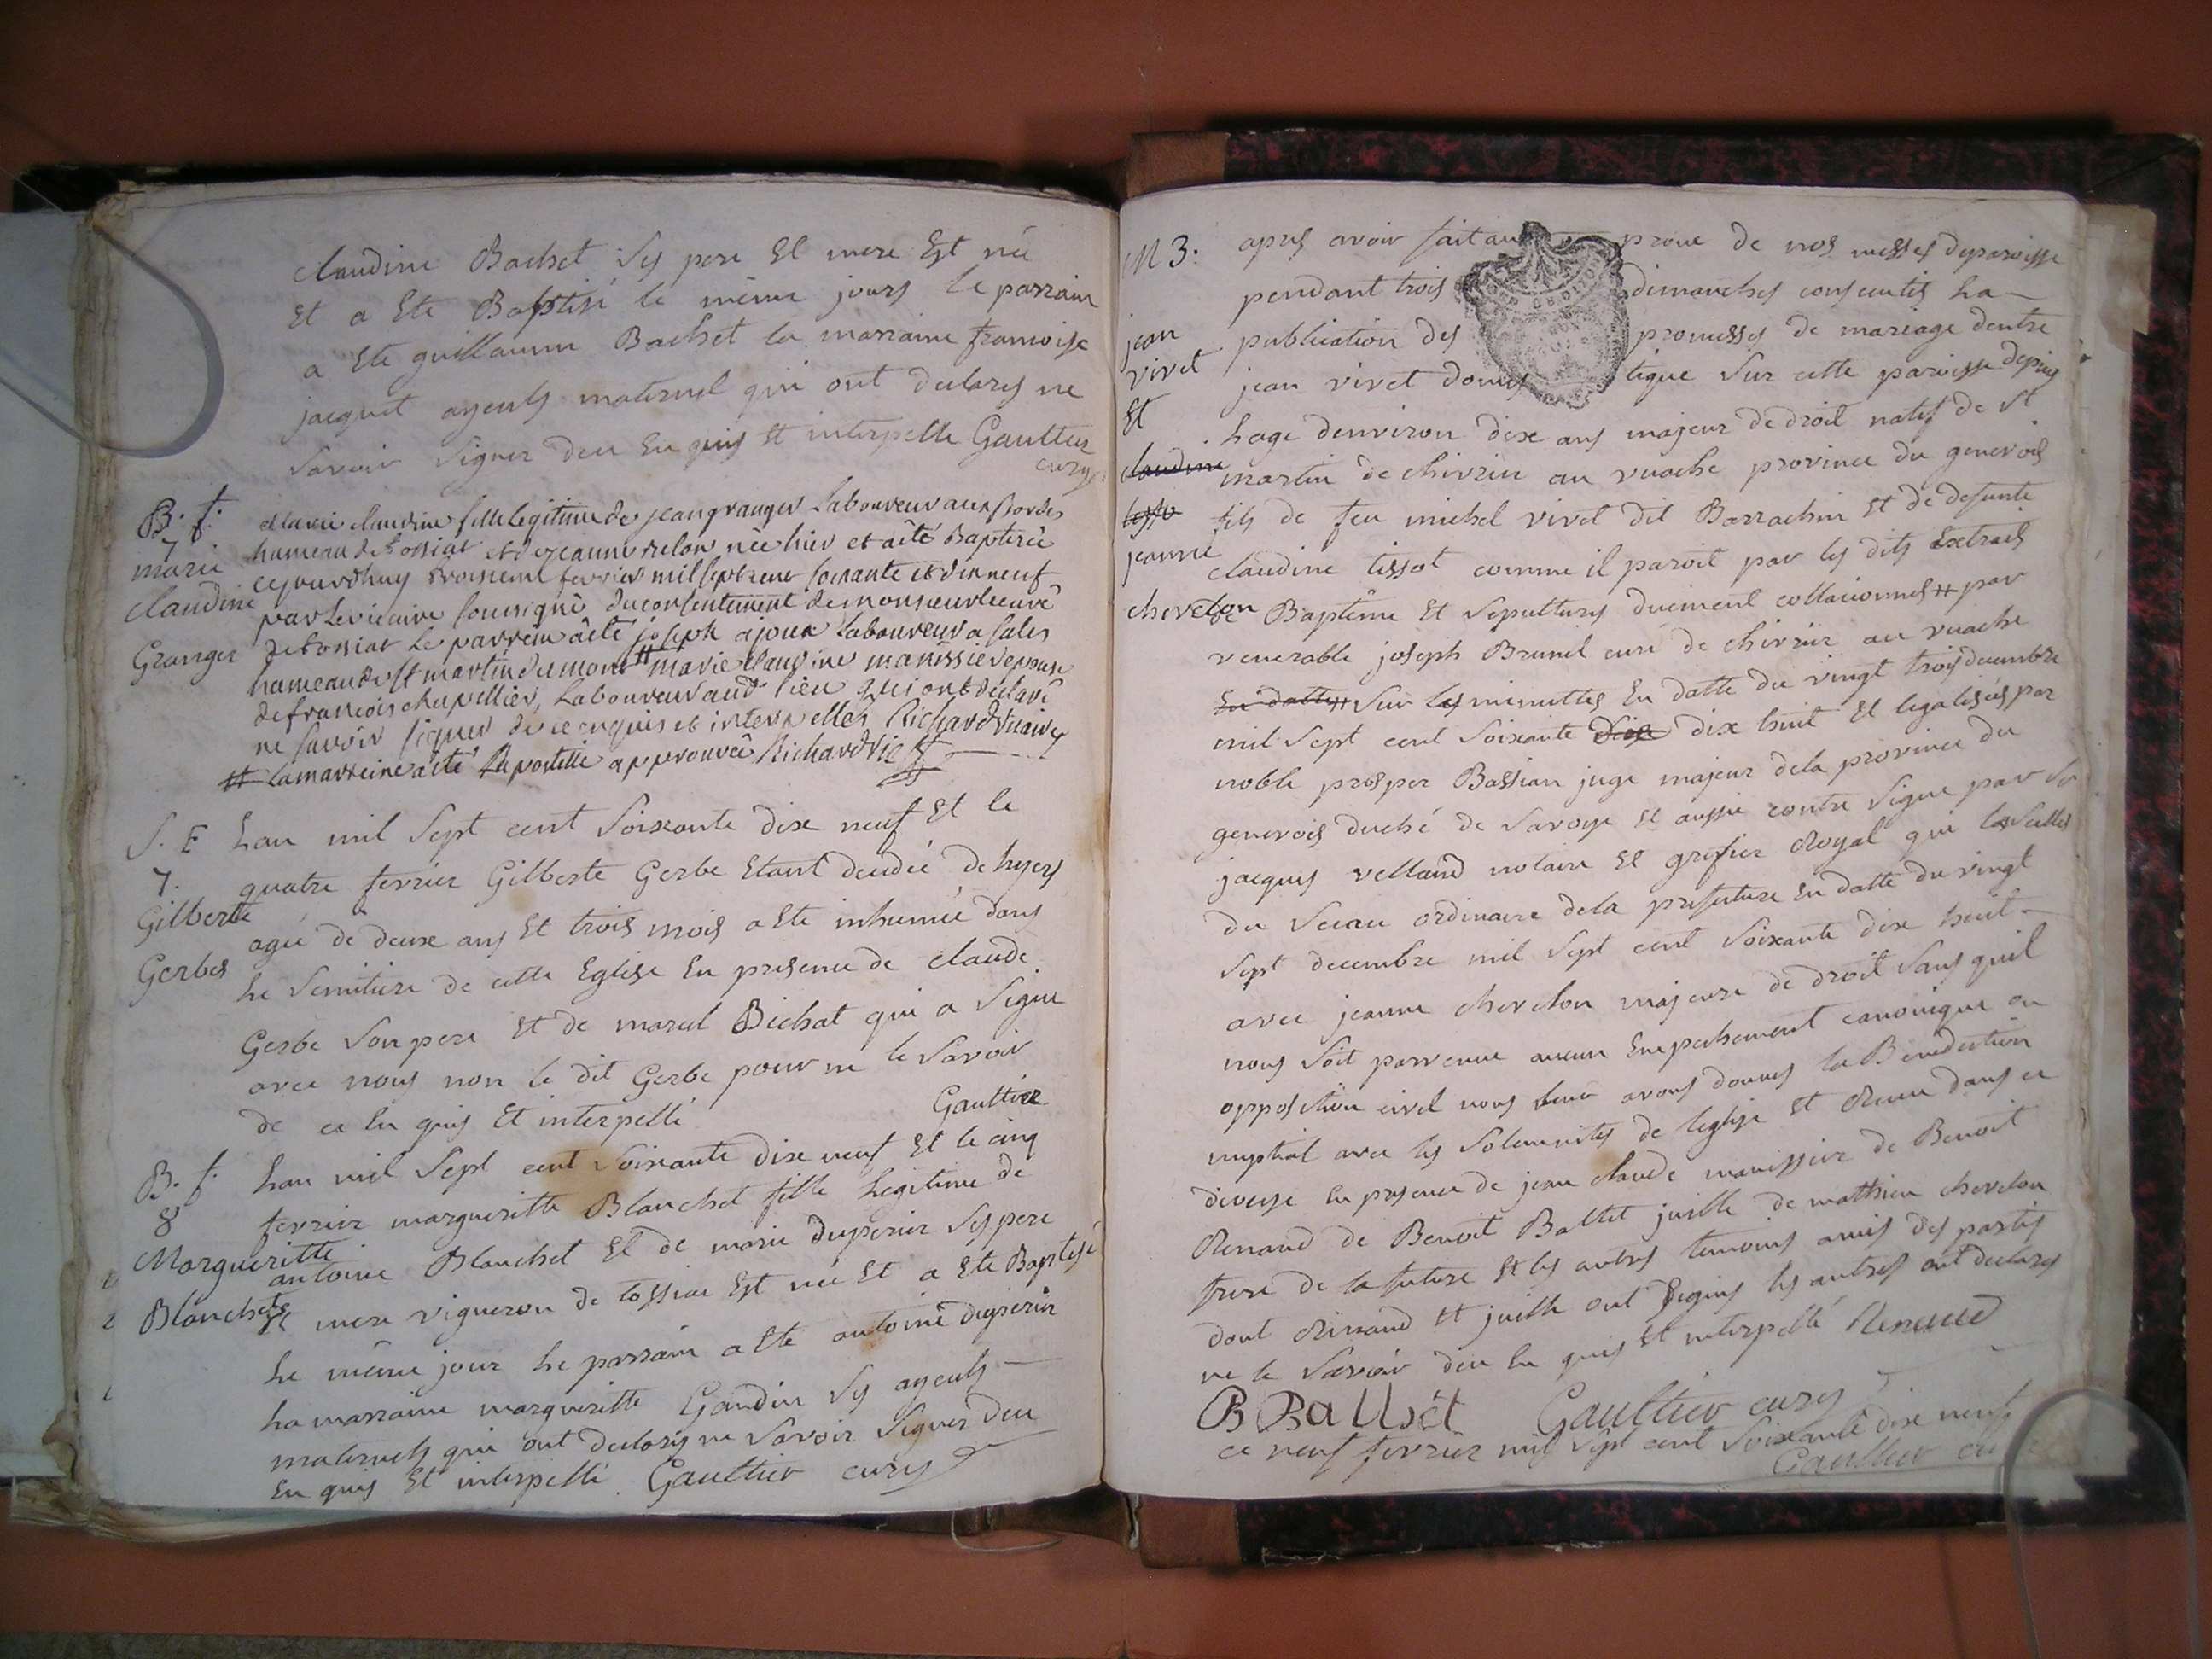 claudine Bachet ses pere Et mere Est née
Et a Ete Baptisé le même jours le parrain
a Ete guillaume Bachet la marraine francoise
jacquet ayeuls maternel qui ont declarez ne
Savoir Signer deu En quis Et interpelle Gaultier
curez
B. f.
7
marie
claudine
Granger
marie claudine fille legitime de jean granger Laboureur aux bordes
hameau de tossiat et de jeanne relon née hier et a été Baptisée
cejourdhuy troisieme fevrier mil sept cent soixante et dix neuf
par le vicaire soussigné du consentement de monsieur le curé
de tossiat Le parrein a été joseph ajoux Laboureur a sales
hameau de St martin du mont # marie claudine manissier epouse
de francois chapellier, Laboureur aud. lieu qui ont déclaré
ne savoir signer de ce enquis et interpellés Richard vicaire
# La marreine a été La postille approuvée Richard vic
S. F
7.
Gilberte
Gerbes
Lan mil Sept cent Soixante dix neuf Et le
quatre fevrier Gilberte Gerbe Etant decedée de hyers
agée de deux ans Et trois mois a Ete inhumée dans
Le Semitiere de cette Eglise En presence de claude
Gerbe Son pere Et de marcel Bichat qui a Signe
avec nous non le dit Gerbe pour ne le Savoir
de ce En quis Et interpellé Gaultier
B. f.
8
Margueritte
Blanchet
Lan mil Sept cent Soixante dix neuf Et le cinq
fevrier margueritte Blanchet fille Legitime de
antoine Blanchet Et de marie duperier Ses pere
Et mere vigneron de tossiat Est née Et a Ete Baptisé
Le même jour Le parrain a Ete antoine duperier
La marraine margueritte Gandin Ses ayeuls
maternels qui ont declarez ne Savoir Signer deu
En quis Et interpellé. Gaultier curez
M 3.
jean
vivet
Et
claudine
tisso
jeanne
chevelon
apres avoir fait au prone de nos messes de paroisse
pendant trois dimanches consecutifs La
publication des promesses de mariage dentre
jean vivet domestique Sur cette paroisse depuis
Lage denviron dix ans majeur de droit natif de St
martin de chivrier au vuache province du genevois
fils de feu michel vivet dit Barrachin Et de defunte
claudine tissot comme il paroit par les dits Extraits
de Baptême Et Sepultures duement collationnés # par
venerable joseph Brunel curé de chivrier au vuache
En datte # Sur les minuttes En datte du vingt trois decembre
mil Sept cent Soixante dix dix huit Et legalisés par
noble prosper Bassian juge majeur de la province du
genevois duché de Savoye Et aussi contre Signe par Sr
jacques velland notaire Et grefier Royal qui les Sallés
du Sceau ordinaire de la prefecture En datte du vingt
Sept decembre mil Sept cent Soixante dix huit
avec jeanne chevelon majeure de droit Sans quil
nous Soit parvenue aucun Empechement canonique ou
opposition civil nous leur avons donnes la Benediction
nuptial avec les Solemnités de leglise Et Receu dans ce
diocese En presence de jean claude manissier de Benoit
Renaud de Benoit Ballet juille de matthieu chevelon
frere de la future Et les autres temoins amis des parties
dont Renaud Et juille ont Signes les autres ont declarez
ne le Savoir deu En quis Et interpellé Renaud
B Ballet Gaultier curez
ce neuf fevrier mil Sept cent Soixante dix neuf
Gaultier